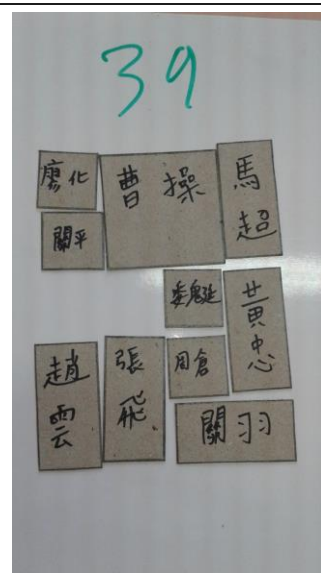 39
廖化
曹操
馬超
關平
魏延
黃忠
趙雲
張飛
周倉
關羽